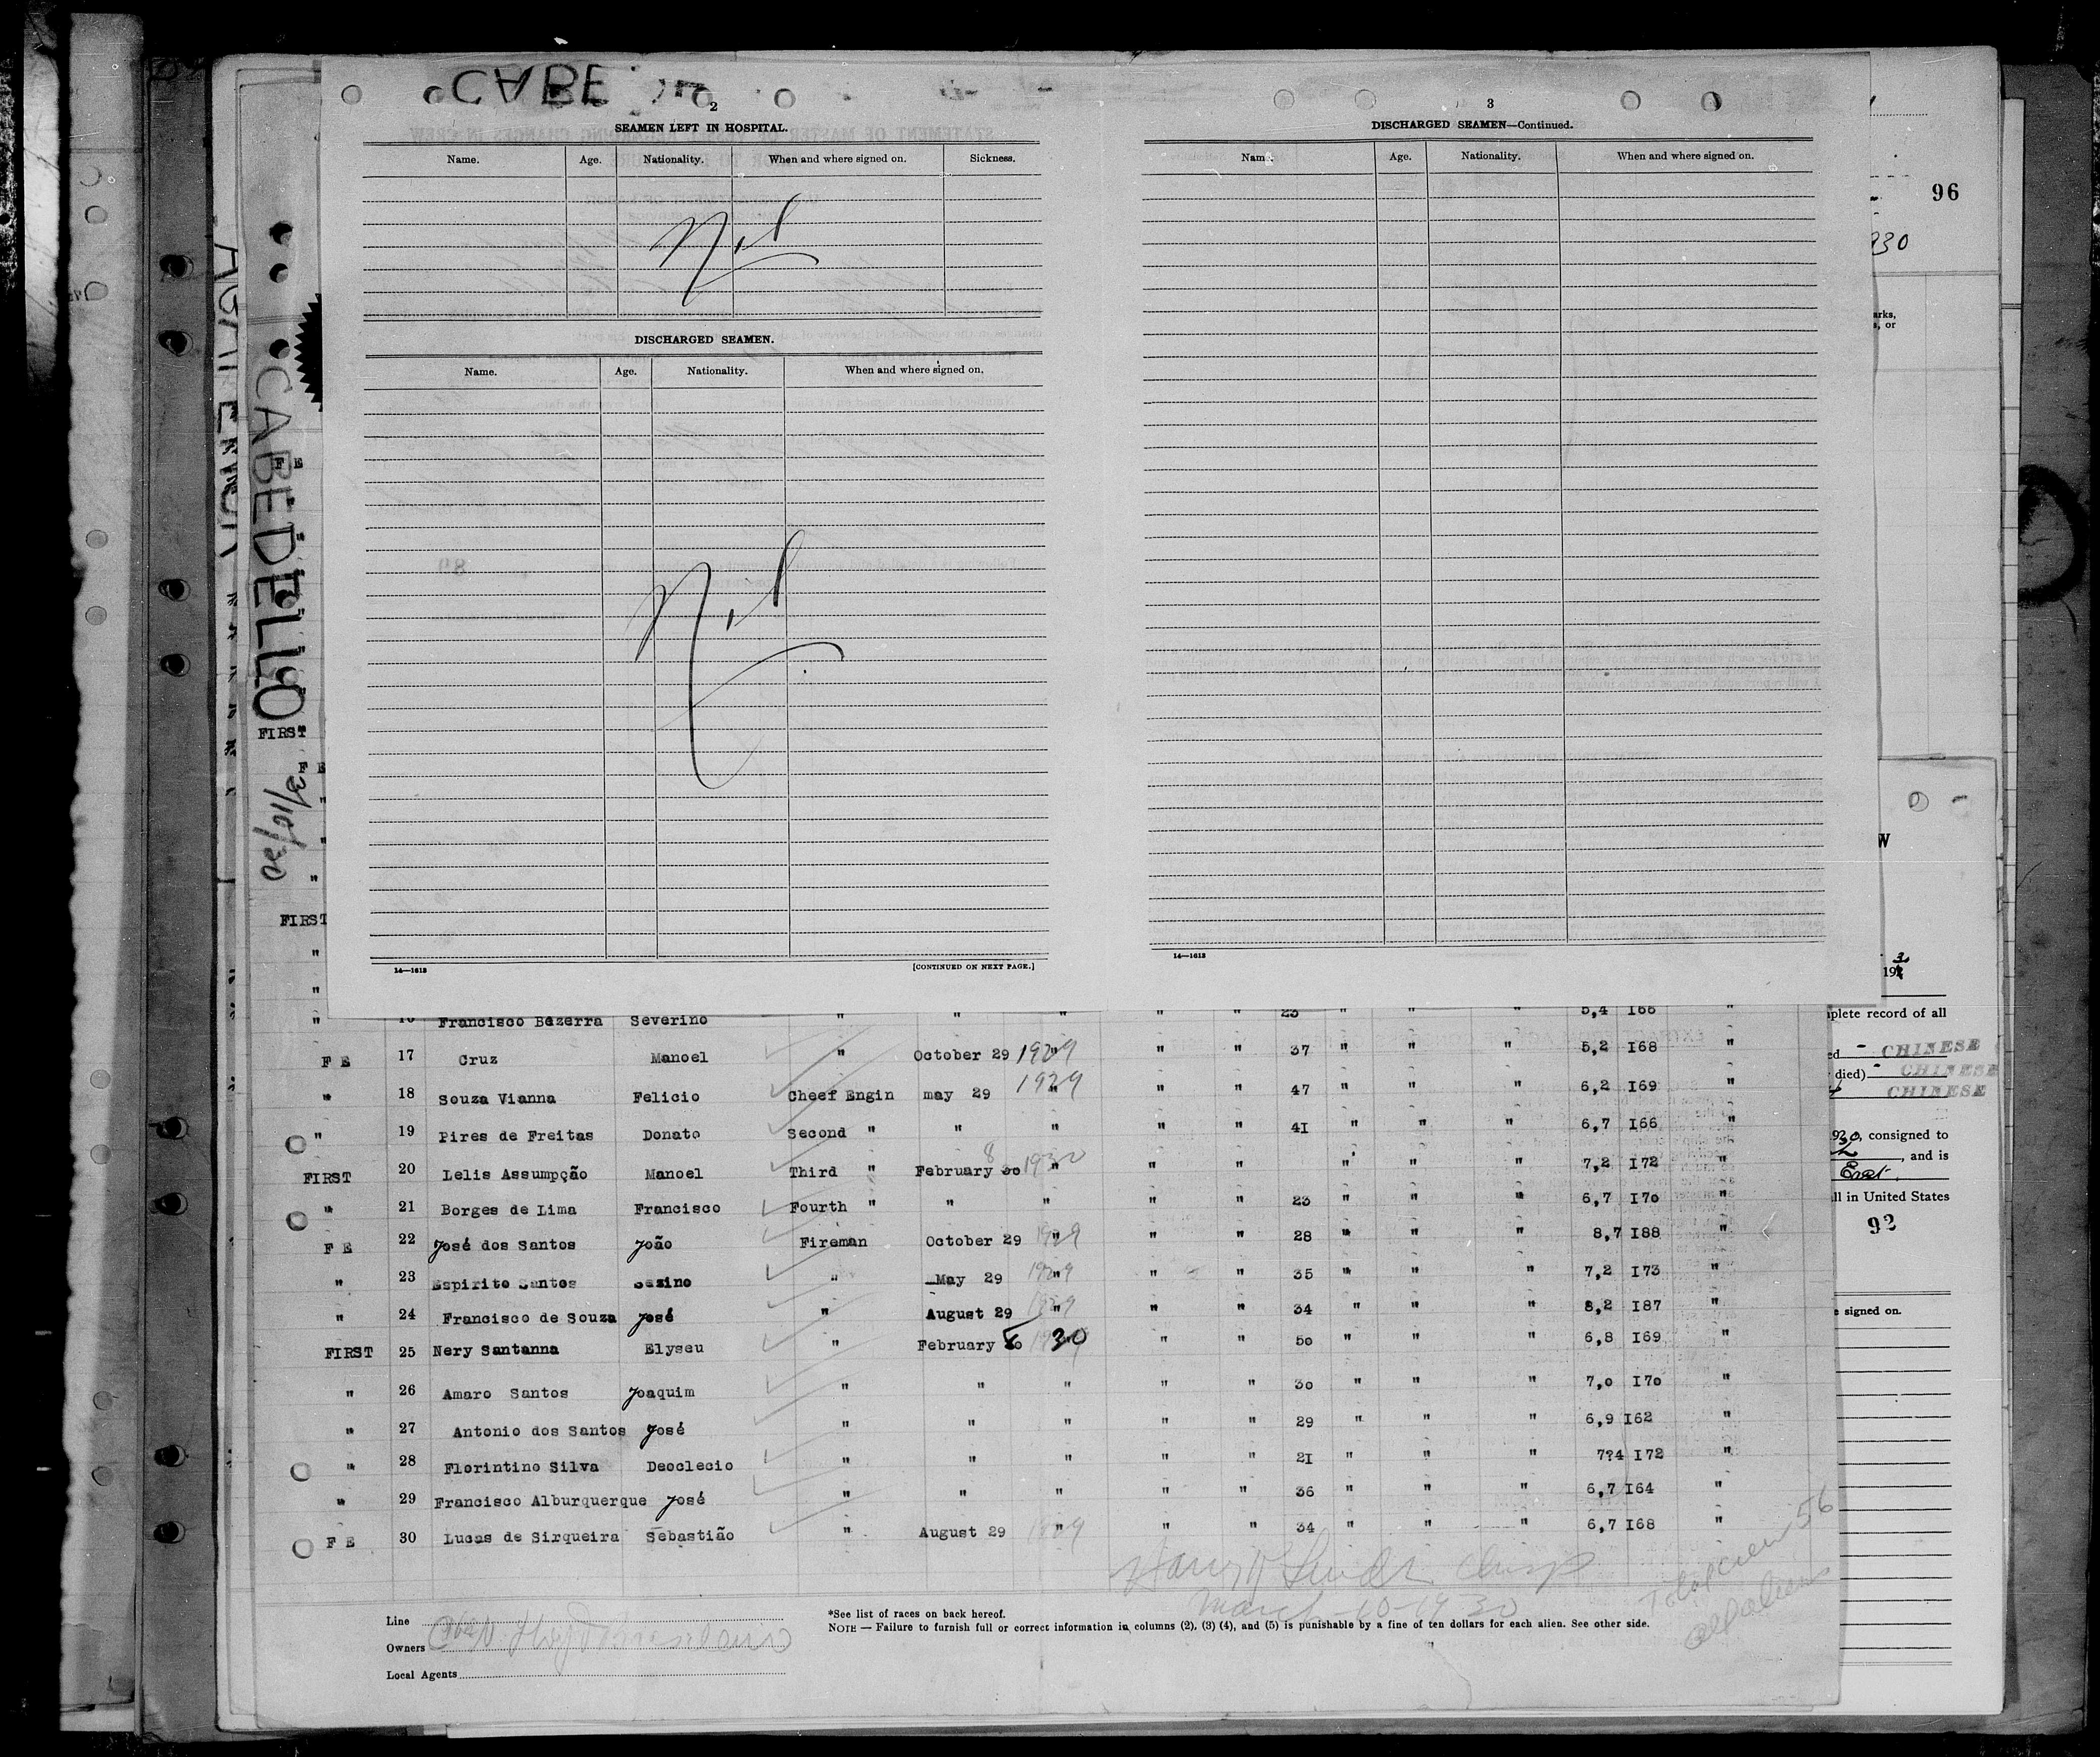 CABE
2
SEAMEN LEFT IN HOSPITAL.
Name. Age. Nationality. When and where signed on. Sickness.
Nil
DISCHARGED SEAMEN.
Name. Age. Nationality. When and where signed on.
Nil
14—1613 [CONTINUED ON NEXT PAGE.]
3
DISCHARGED SEAMEN—Continued.
Name. Age. Nationality. When and where signed on.
14—1613
96
930
arks,
s, or
CABEDELLO
3/10/30
F E
FIRST
F E
"
"
"
FIRST
"
"
" 16 Francisco Bezerra Severino " " " " " 25 " " " 5,4 I66 "
F E 17 Cruz Manoel " October 29 1929 " " 37 " " " 5,2 I68 "
" 18 Souza Vianna Felicio Cheef Engin may 29 1929 " " 47 " " " 6,2 I69 "
" 19 Pires de Freitas Donato Second " " " " " 4I " " " 6,7 I66 "
FIRST 20 Lelis Assumpção Manoel Third " February 8 30 1930 " " " " " 7,2 I72 "
" 21 Borges de Lima Francisco Fourth " " " " " 23 " " " 6,7 I70 "
F E 22 José dos Santos João Fireman October 29 1929 " " 28 " " " 8,7 I88 "
" 23 Espirito Santos " May 29 1929 " " 35 " " " 7,2 I73 "
" 24 Francisco de Souza José " August 29 1929 " " 34 " " " 8,2 I87 "
FIRST 25 Nery Santanna Elyseu " February 30 " " 50 " " " 6,8 I69 "
" 26 Amaro Santos Joaquim " " " " " 30 " " " 7,0 I70 "
" 27 Antonio dos Santos José " " " " " 29 " " " 6,9 I62 "
" 28 Florintino Silva Deoclecio " " " " " 2I " " " 7?4 I72 "
" 29 Francisco Alburquerque José " " " " " 36 " " " 6,7 I64 "
F E 30 Lucas de Sirqueira Sebastião " August 29 1929 " " 34 " " " 6,7 I68 "
March-10-1930
Total crew 56
all aliens
Line
Owners
Local Agents
*See list of races on back hereof.
NOTE — Failure to furnish full or correct information in columns (2), (3) (4), and (5) is punishable by a fine of ten dollars for each alien. See other side.
W
193
plete record of all
ed - CHINESE
died) - CHINESE
CHINESE
1930, consigned to
, and is
East.
ll in United States
92
e signed on.